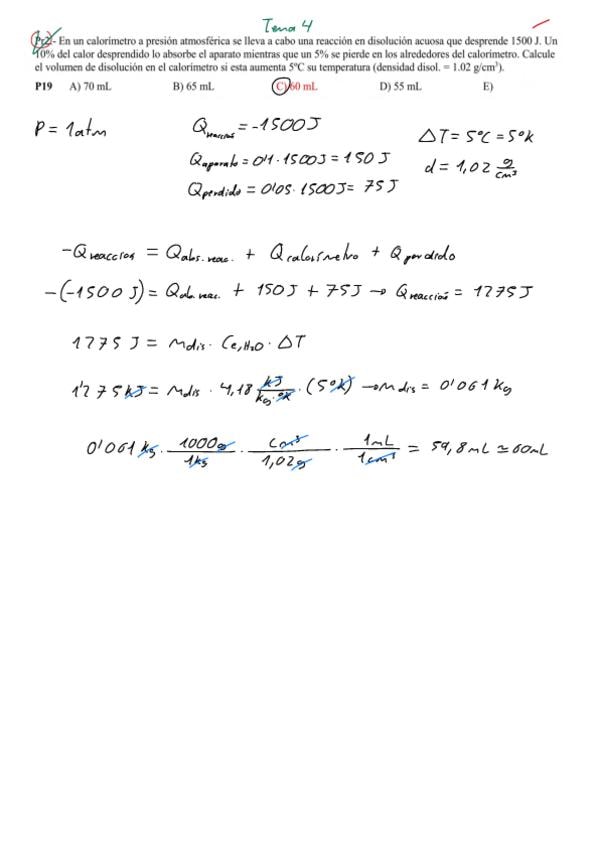 Tema 4
Pr2.- En un calorímetro a presión atmosférica se lleva a cabo una reacción en disolución acuosa que desprende 1500 J. Un
10% del calor desprendido lo absorbe el aparato mientras que un 5% se pierde en los alrededores del calorímetro. Calcule
el volumen de disolución en el calorímetro si esta aumenta 5ºC su temperatura (densidad disol. = 1.02 g/cm³).
P19 A) 70 mL B) 65 mL C) 60 mL D) 55 mL E)
P = 1atm
Qreacción = -1500J
Qaparato = 0'1 · 1500J = 150 J
Qperdido = 0'05 · 1500J = 75 J
ΔT = 5ºC = 5ºK
d = 1,02 g/cm³
-Qreacción = Qabs.reac. + Qcalorímetro + Qperdido
-(-1500 J) = Qab.reac. + 150J + 75J → Qreacción = 1275J
1275 J = mdis · Ce,H2O · ΔT
1'275 kJ = mdis · 4,18 kJ/kg·ºK · (5ºK) → mdis = 0'061 kg
0'061 kg · 1000g/1kg · cm³/1,02g · 1mL/1cm³ = 59,8mL ≃ 60mL